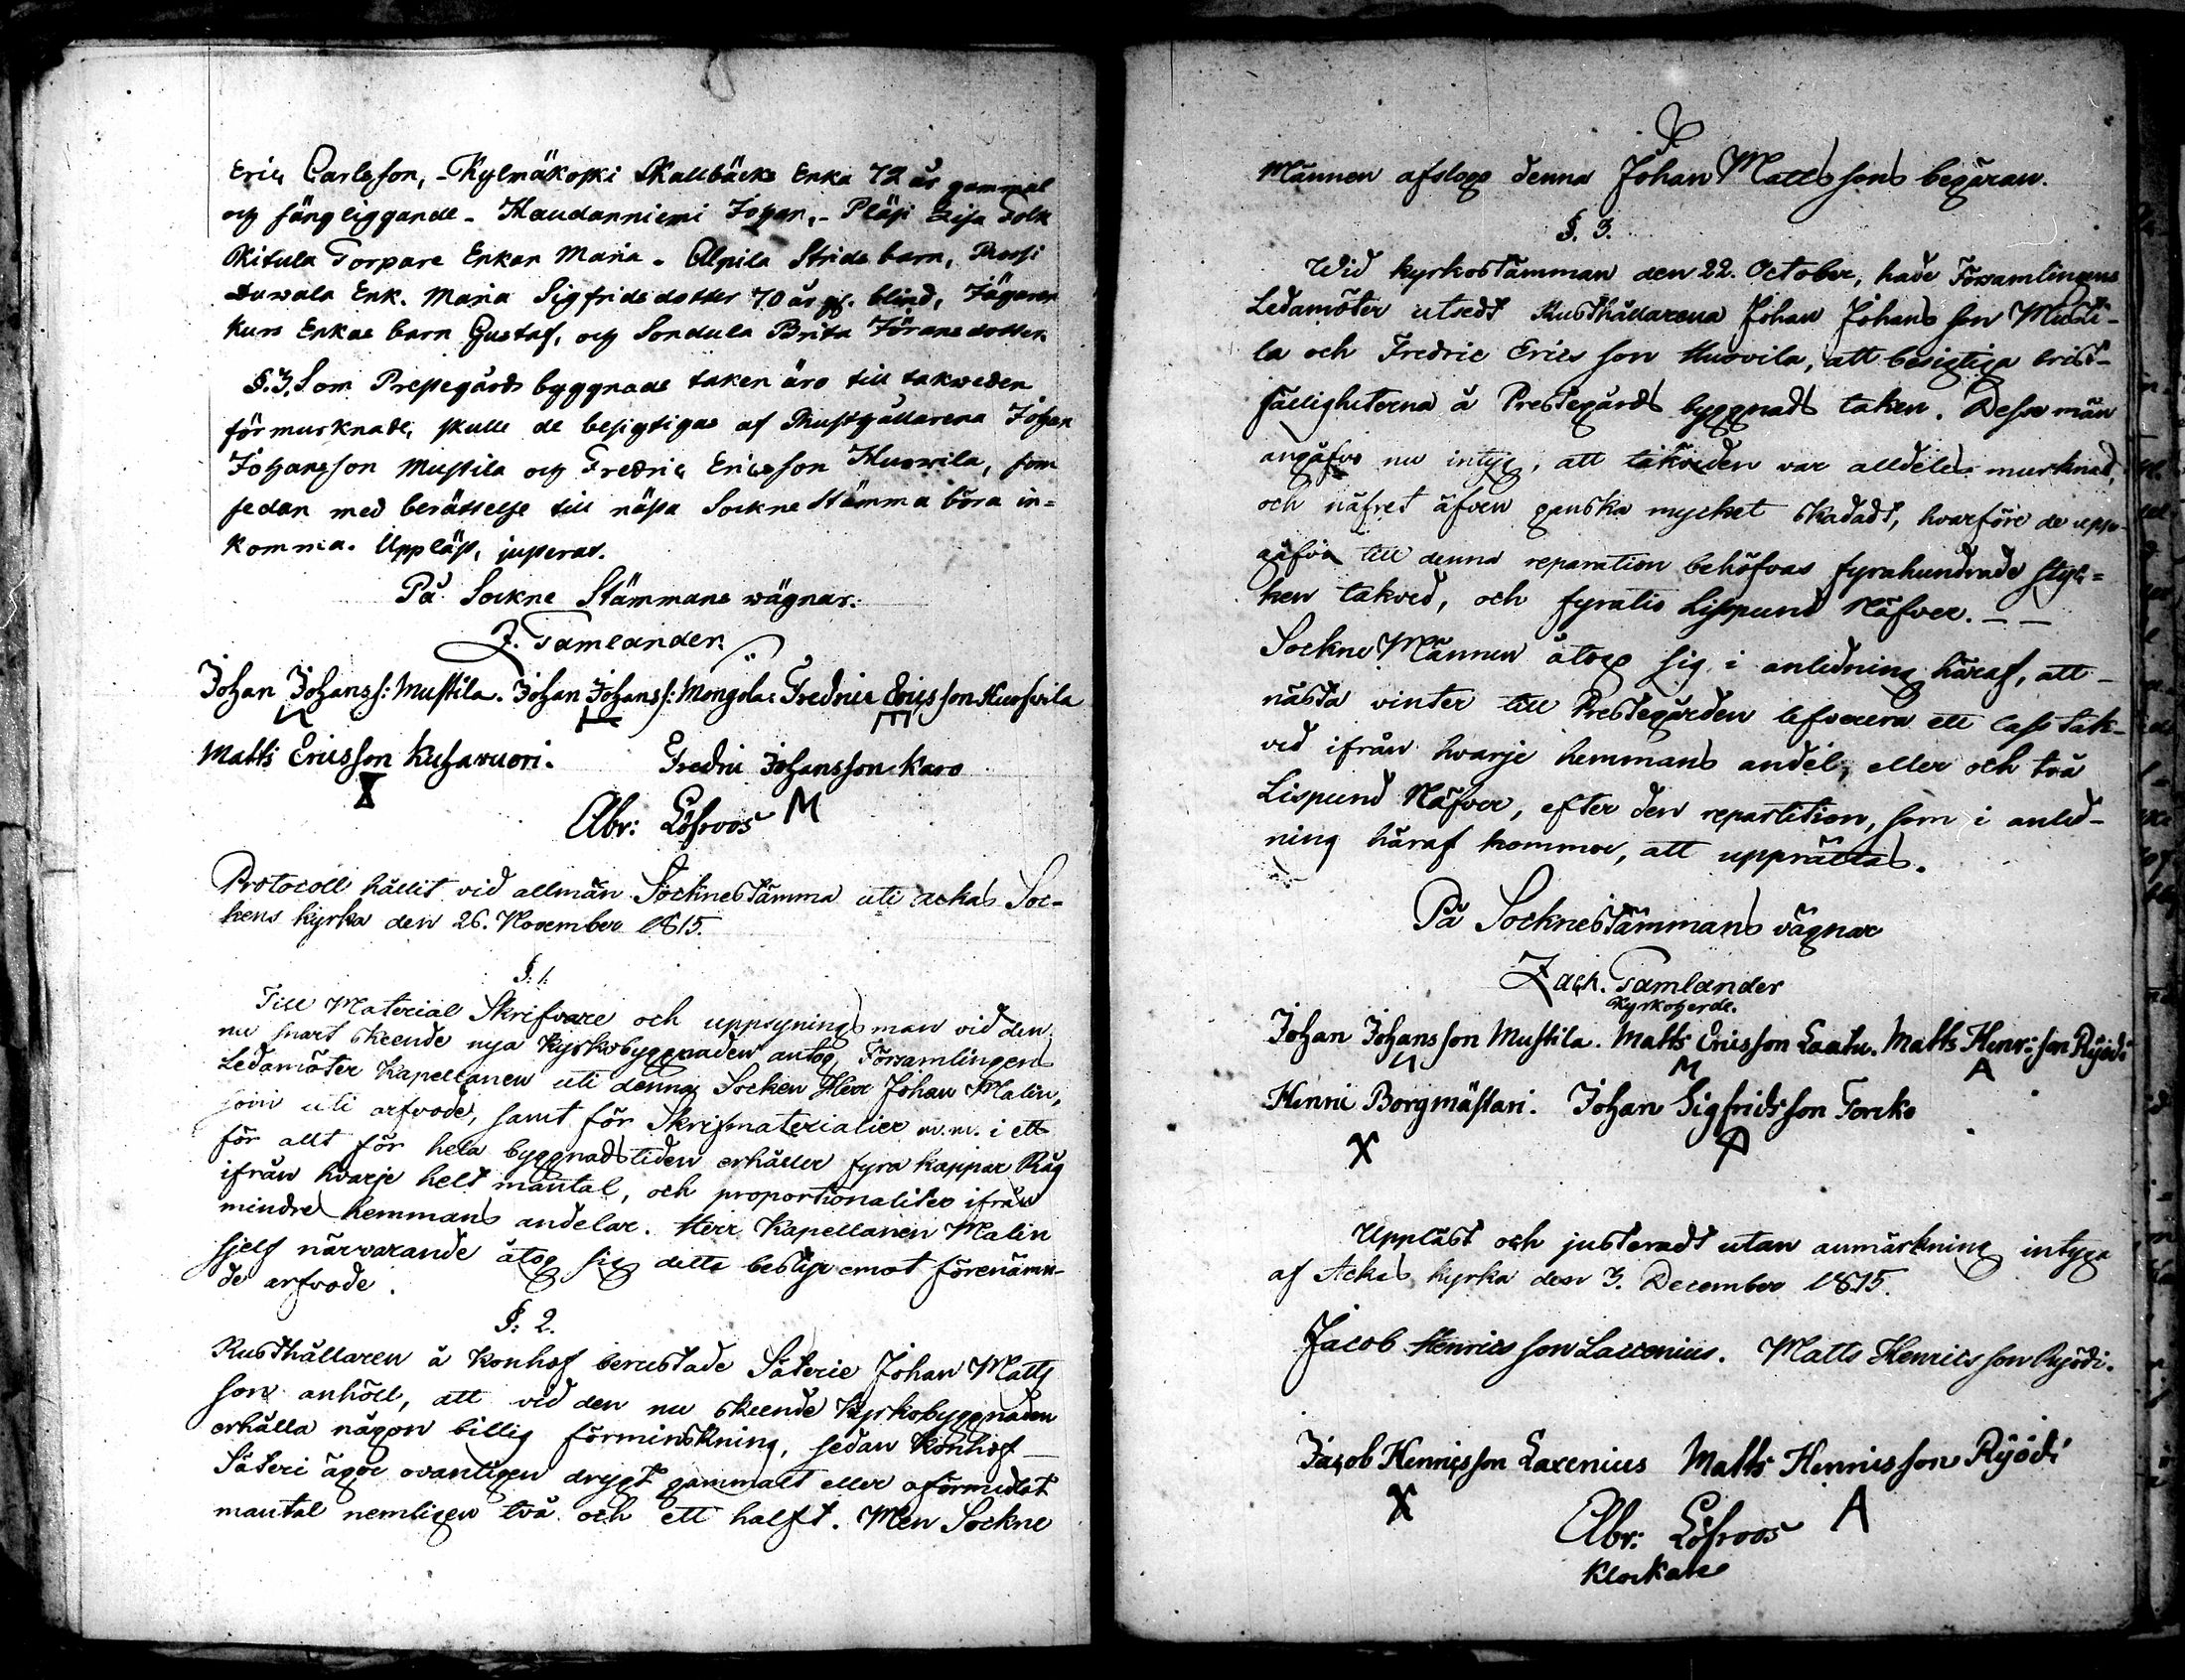 Eric Carlsson, - Kylmäkoski Skallbäcks Enka 72 år gammal
och sängliggande - Haudanniemi Johan, - Pläsi Lisa Folk
Kitula Torpare Enkan Maria - Alpila Strids barn, Roosi
Enk. Maria Sigfridsdotter 70 år gl. blind, Jägaren
Kurs Enkas barn Gustaf, och Sondula Brita Göransdotter.
§. 3. Som Prestegårds byggnads taken äro till takweden
förmurknade, skulle de besigtigas af Rusthållarena Johan
Johansson Mustila och Fredric Ericsson Huowila, som
sedan med berättelse till nästa Sockne Stämma böra in=
komma. Uppläst, justerat.
På Sockne Stämmans wägnar.
Z. Tamlander.
Johan Johanss: Mustila. Johan Johanss: Mongola: Fredric Ericsson Huowila
Matts Ericsson Kuhavuori. Fredric Johansson Karo
M
Abr: Löfroos
Protocoll hållit vid allmän Socknestämma uti Ackas Soc-
kens kyrka den 26. November 1815.
§: 1.
Till Material Skrifvare och uppsyningsman vid den
nu snart skeende nya Kyrkobyggnaden antog Församlingens
Ledamöter Kapellanen uti denna Socken Herr Johan Malin,
som uti arfvode, samt för Skrifmaterialier m.m. i ett
för allt för hela byggnadstiden erhåller fyra kappar Råg
ifrån hvarje helt mantal, och proportionaliter ifrån
mindre hemmans andelar. Herr Kapellanen Malin
sjelf närvarande åtog sig detta bestyr emot förenämn-
de arfvode.
§: 2.
Rusthållaren å Konhof berustade Säterie Johan Matts
son anhöll, att vid den nu skeende Kyrkobyggnaden
erhålla någon billig förminskning, sedan Konhof
Säteri äger ovanligen drygt gammalt eller oförmedlat
mantal nemligen två och ett halft. Men Sockne
Männen afslogo denna Johan Mattssons begäran.
§. 3.
Wid kyrkostämman den 22. October, hade Församlingens
Ledamöter utsedt Rusthållarena Johan Johansson Musti-
la och Fredric Ericsson Huovila, att besigtiga brist-
fälligheterna å Prestegårds byggnads taken. Desse män
angåfvo nu intyg, att takveden var alldeles murknad,
och näfret äfven ganska mycket skadadt, hvarföre de upp-
gåfvo till denna reparation behöfvas fyrahundrade styc=
ken takved, och fyratio Lispund Näfver. - -
Sockne Männen åtogo sig i anledning häraf, att
nästa vinter till Prestegården lefverera ett lass tak-
ved ifrån hvarje hemmans andel, eller och två
Lispund Näfver, efter den repartition, som i anled-
ning häraf kommer, att upprättas.
På Socknestämmans vägnar
Zach. Tamlander
Kyrkoherde.
Johan Johansson Mustila. Matts Ericsson Laatu. Matts Henr: son Ryödi
M A
Henric Borgmästari. Johan Sigfridsson Torcko
X
Uppläst och justeradt utan anmärkning intyga
af Ackas kyrka den 3. December 1815.
Jacob Henricsson Laxenius. Matts Henricsson Ryödi.
Jacob Henricsson Laxenius Matts Henricsson Ryödi
X A
Abr: Löfroos
Klockare